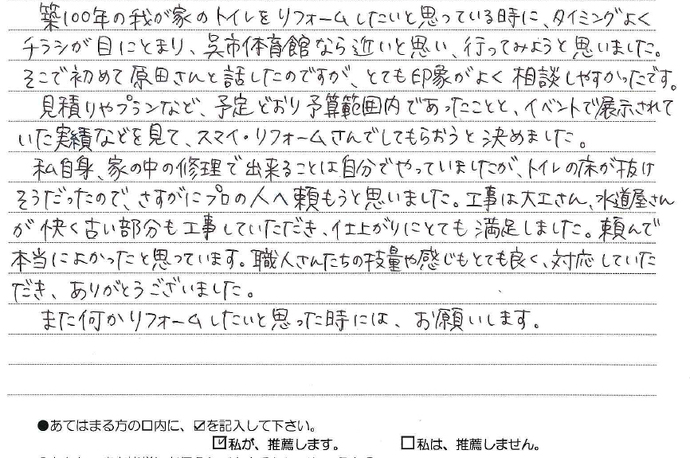 築100年の我が家のトイレをリフォームしたいと思っている時に、タイミングよく
チラシが目にとまり、呉市体育館なら近いと思い、行ってみようと思いました。
そこで初めて原田さんと話したのですが、とても印象がよく相談しやすかったです。
見積りやプランなど、予定どおり予算範囲内であったことと、イベントで展示されて
いた実績などを見て、スマイ・リフォームさんでしてもらおうと決めました。
私自身、家の中の修理で出来ることは自分でやっていましたが、トイレの床が抜け
そうだったので、さすがにプロの人へ頼もうと思いました。工事は大工さん、水道屋さん
が快く古い部分も工事していただき、仕上がりにとても満足しました。頼んで
本当によかったと思っています。職人さんたちの技量や感じもとても良く、対応していた
だき、ありがとうございました。
また何かリフォームしたいと思った時には、お願いします。
●あてはまる方の口内に、☑を記入して下さい。
☑私が、推薦します。 □私は、推薦しません。